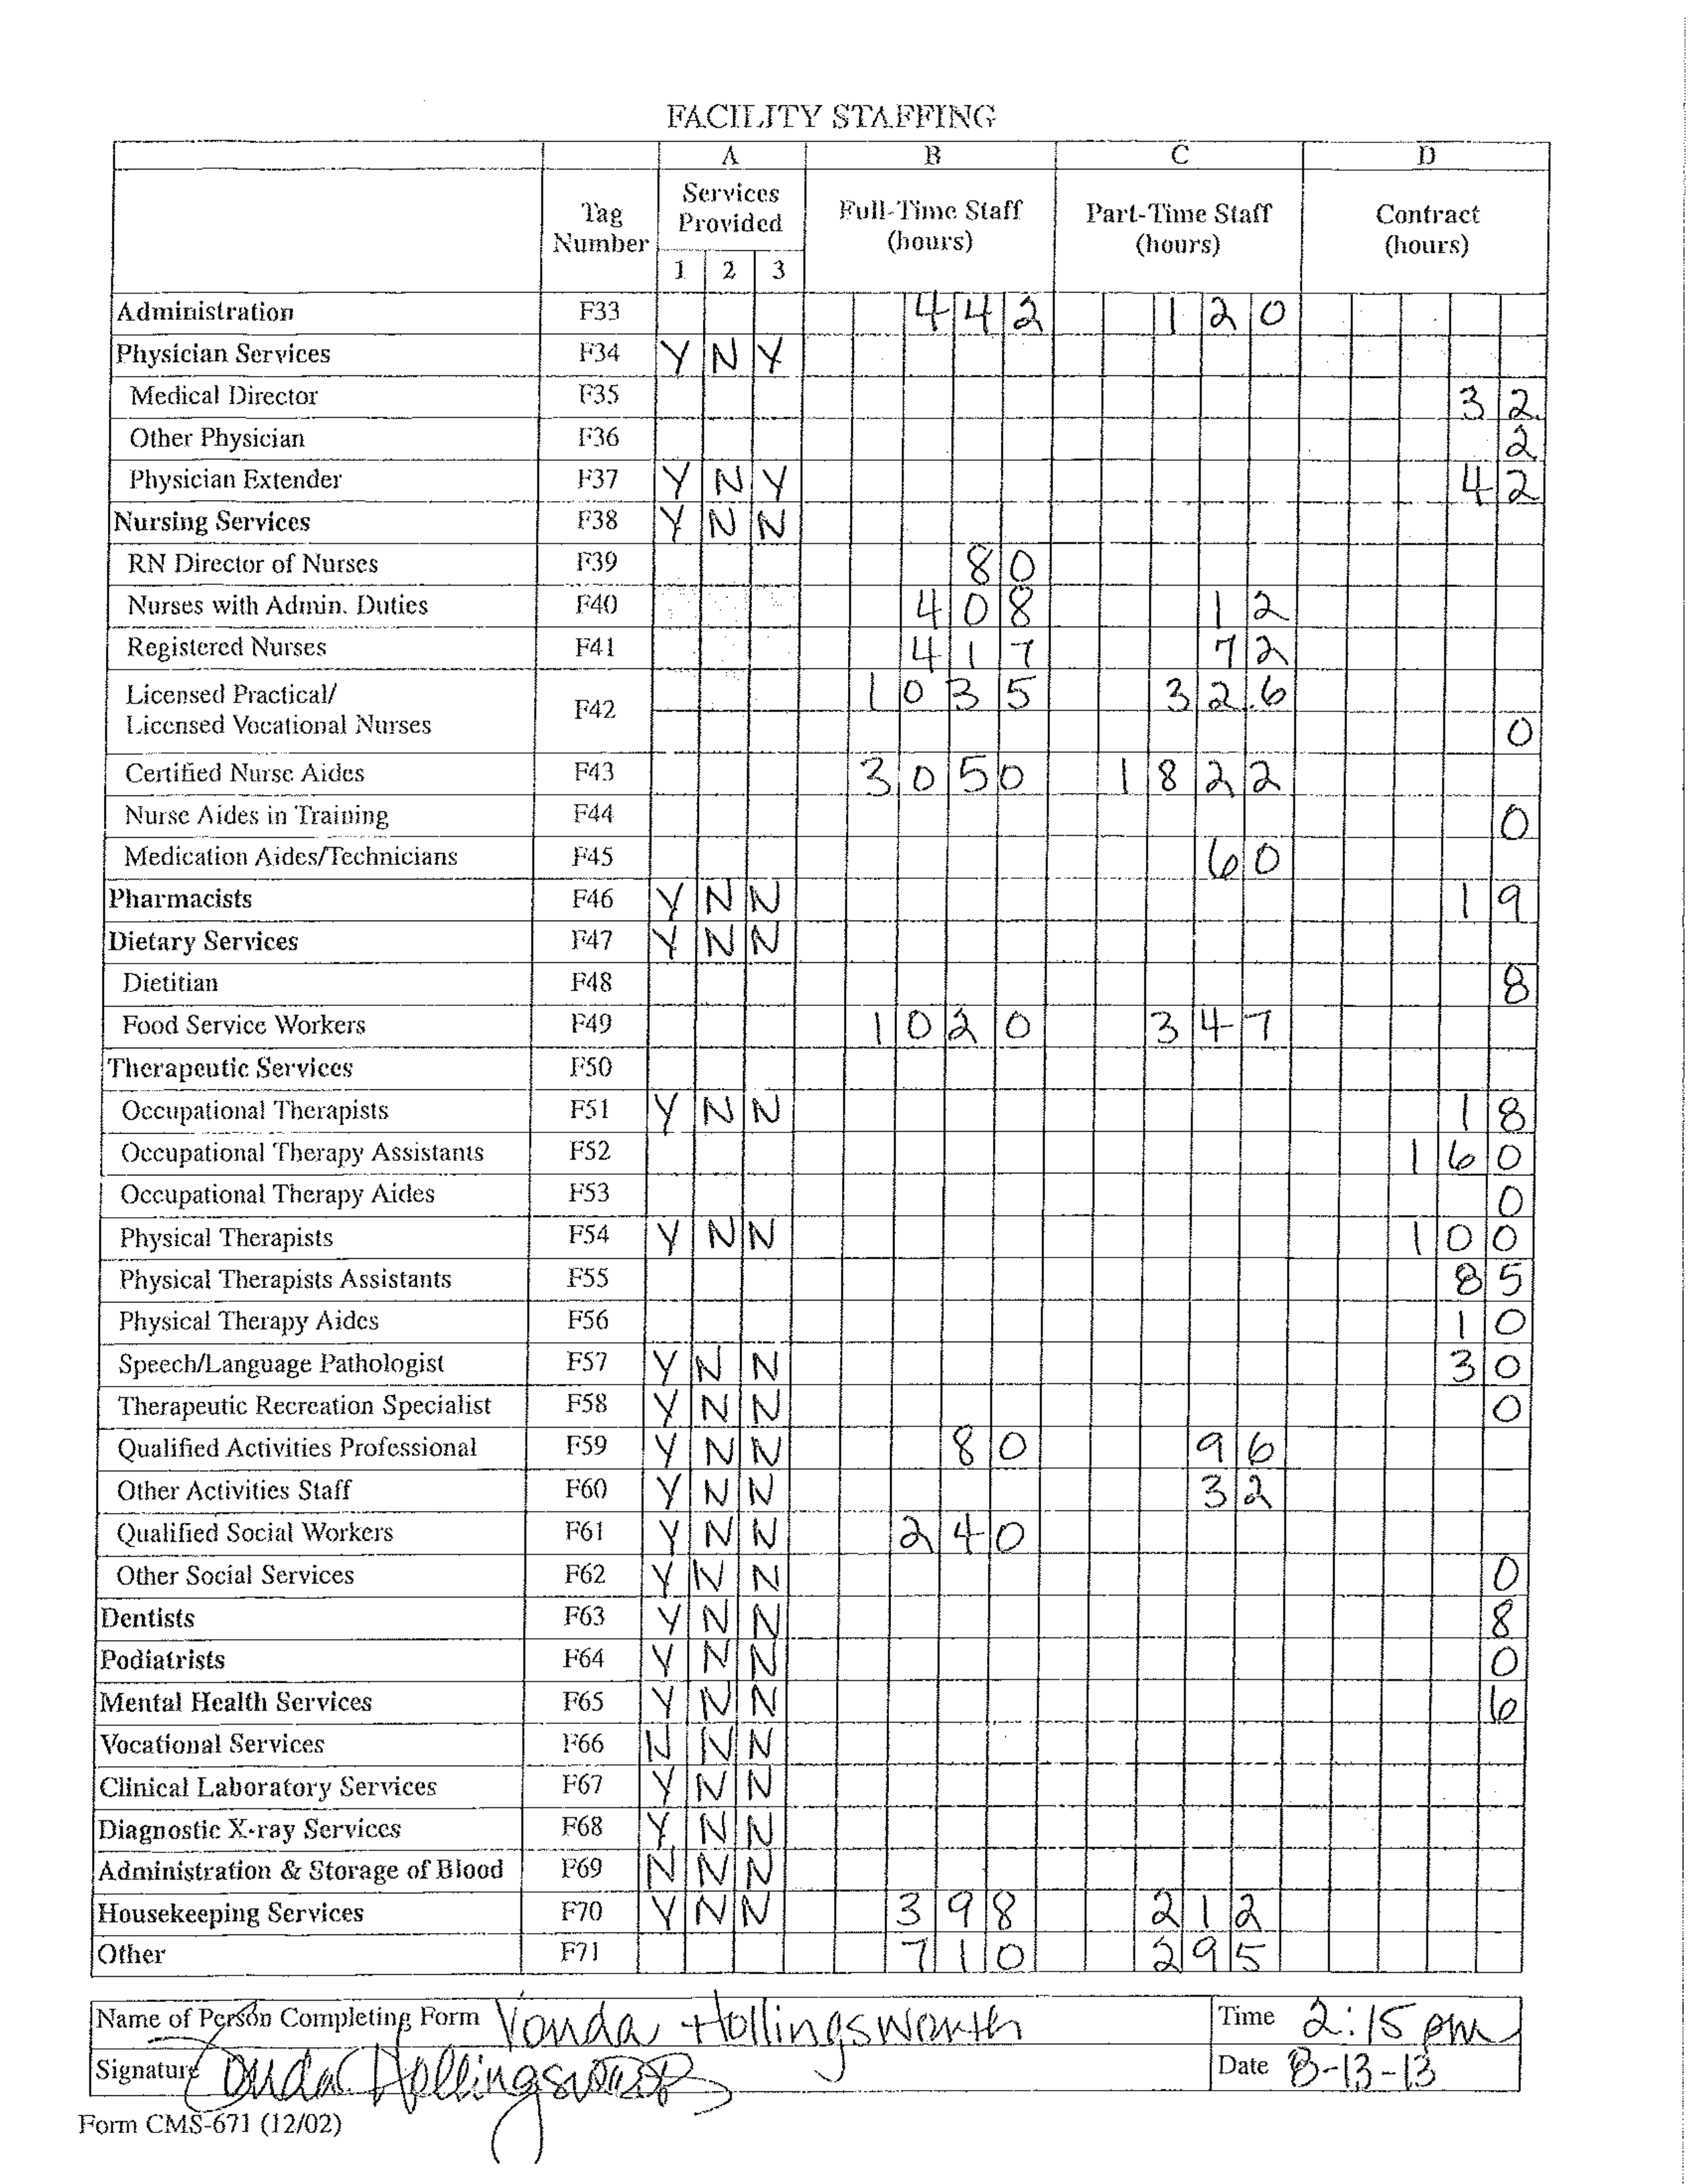 FACILITY STAFFING
A B C D
Tag Number Services Provided Full-Time Staff (hours) Part-Time Staff (hours) Contract (hours)
1 2 3
Administration F33 442 120
Physician Services F34 Y N Y
Medical Director F35 32
Other Physician F36 2
Physician Extender F37 Y N Y 42
Nursing Services F38 Y N N
RN Director of Nurses F39 80
Nurses with Admin. Duties F40 408 12
Registered Nurses F41 417 72
Licensed Practical/
Licensed Vocational Nurses F42 1035 32.6 0
Certified Nurse Aides F43 3050 1822
Nurse Aides in Training F44 0
Medication Aides/Technicians F45 60
Pharmacists F46 Y N N 19
Dietary Services F47 Y N N
Dietitian F48 8
Food Service Workers F49 1020 347
Therapeutic Services F50
Occupational Therapists F51 Y N N 18
Occupational Therapy Assistants F52 160
Occupational Therapy Aides F53 0
Physical Therapists F54 Y N N 100
Physical Therapists Assistants F55 85
Physical Therapy Aides F56 10
Speech/Language Pathologist F57 Y N N 30
Therapeutic Recreation Specialist F58 Y N N 0
Qualified Activities Professional F59 Y N N 80 96
Other Activities Staff F60 Y N N 32
Qualified Social Workers F61 Y N N 240
Other Social Services F62 Y N N 0
Dentists F63 Y N N 8
Podiatrists F64 Y N N 0
Mental Health Services F65 Y N N 6
Vocational Services F66 N N N
Clinical Laboratory Services F67 Y N N
Diagnostic X-ray Services F68 Y N N
Administration & Storage of Blood F69 N N N
Housekeeping Services F70 Y N N 398 212
Other F71 710 295
Name of Person Completing Form Vonda Hollingsworth Time 2:15 pm
Signature Vonda Hollingsworth Date 8-13-13
Form CMS-671 (12/02)